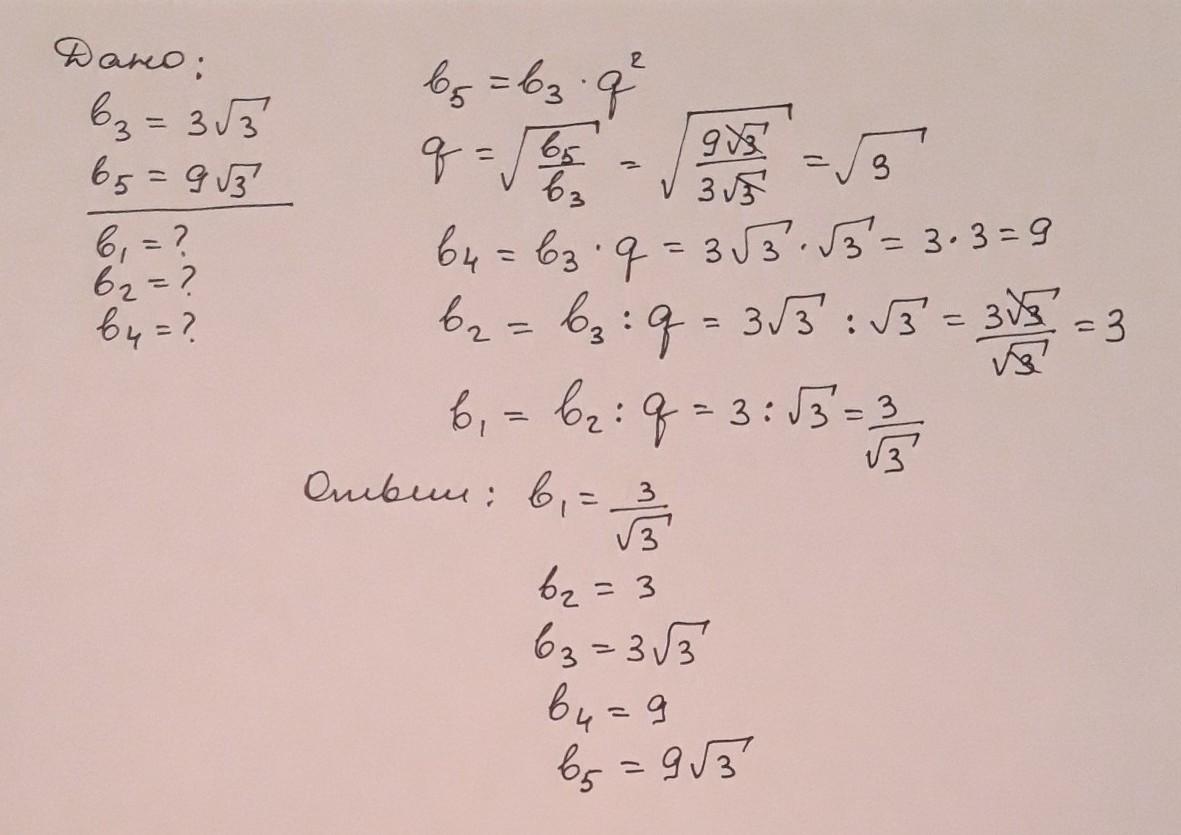 Дано:
b₃ = 3√3
b₅ = 9√3
b₁ = ?
b₂ = ?
b₄ = ?
b₅ = b₃ · q²
q = √(b₅/b₃) = √(9√3/3√3) = √3
b₄ = b₃ · q = 3√3 · √3 = 3 · 3 = 9
b₂ = b₃ : q = 3√3 : √3 = 3√3/√3 = 3
b₁ = b₂ : q = 3 : √3 = 3/√3
Ответ: b₁ = 3/√3
b₂ = 3
b₃ = 3√3
b₄ = 9
b₅ = 9√3